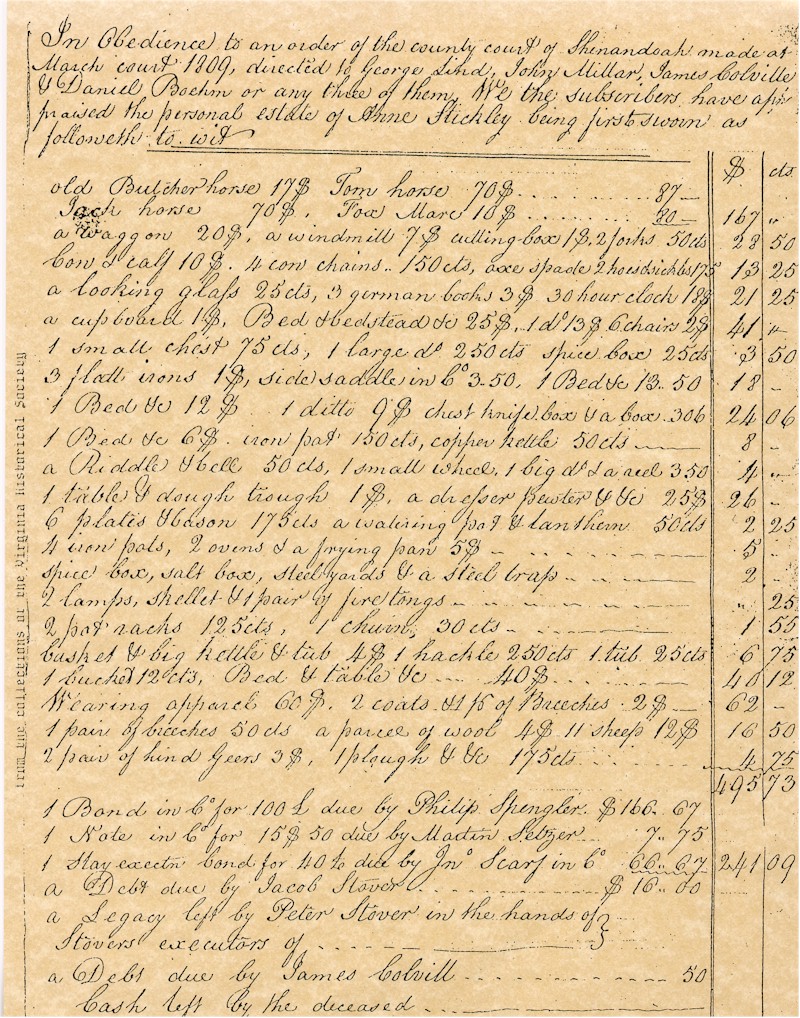 In Obedience to an order of the county court of Shenandoah made at
March court 1809, directed to George Lind, John Millar, James Colville
& Daniel Boehm or any three of them, We the subscribers have ap-
praised the personal estate of Anne Stickley being first sworn as
followeth to wit
$ cts
old Butcher horse 17$ Tom horse 70$ .......... 87 —
Jack horse 70$. Fox Mare 10$ .......... 80 — 167 "
a waggon 20$, a windmill 7$ cutting box 1$, 2 forks 50cts 28 50
Cow & calf 10$. 4 cow chains .. 150cts, axe spade 2 hoes & sickles 175 13 25
a looking glass 25cts, 3 german books 3$ 30 hour clock 18$ 21 25
a cupboard 1$, Bed & bedstead &c 25$, 1 do 13$ 6 chairs 2$ 41 "
1 small chest 75cts, 1 large do 250cts spice box 25cts 3 50
3 flatt irons 1$, side saddle in Co 3.50, 1 Bed &c 13.50 18 —
1 Bed &c 12$ 1 ditto 9$ chest knife box & a box .306 24 06
1 Bed &c 6$. iron pot 150cts, copper kettle 50cts — 8 "
a Riddle & bell 50cts, 1 small wheel, 1 big do & a reel 350 4 "
1 table & dough trough 1$, a dresser pewter & &c 25$ 26 "
6 plates & bason 175cts a watering pot & lanthern 50cts 2 25
4 iron pots, 2 ovens & a frying pan 5$ 5 "
spice box, salt box, steelyards & a steel trap 2 "
2 lamps, skellet & 1 pair of fire tongs " 25
2 pot racks 125cts, 1 churn, 30cts 1 55
busket & big kettle & tub 4$ 1 hackle 250cts 1 tub 25cts 6 75
1 bucket 12cts, Bed & table &c 40$ 40 12
Wearing apparel 60$. 2 coats & 1 pr of Breeches 2$ — 62 —
1 pair of breeches 50cts a parcel of wool 4$ 11 sheep 12$ 16 50
2 pair of hind Geers 3$, 1 plough & &c 175cts 4 75
495 73
1 Bond in Co for 100£ due by Philip Spengler. $166.67
1 Note in Co for 15$50 due by Martin Seltzer 7..75
1 Stay exectn bond for 40£ due by Jno Scarf in Co 66..67 241 09
a Debt due by Jacob Stover $16..00
a Legacy left by Peter Stover in the hands of
Stovers executors of
a Debt due by James Colvill 50
Cash left by the deceased
from the collections of the Virginia Historical Society